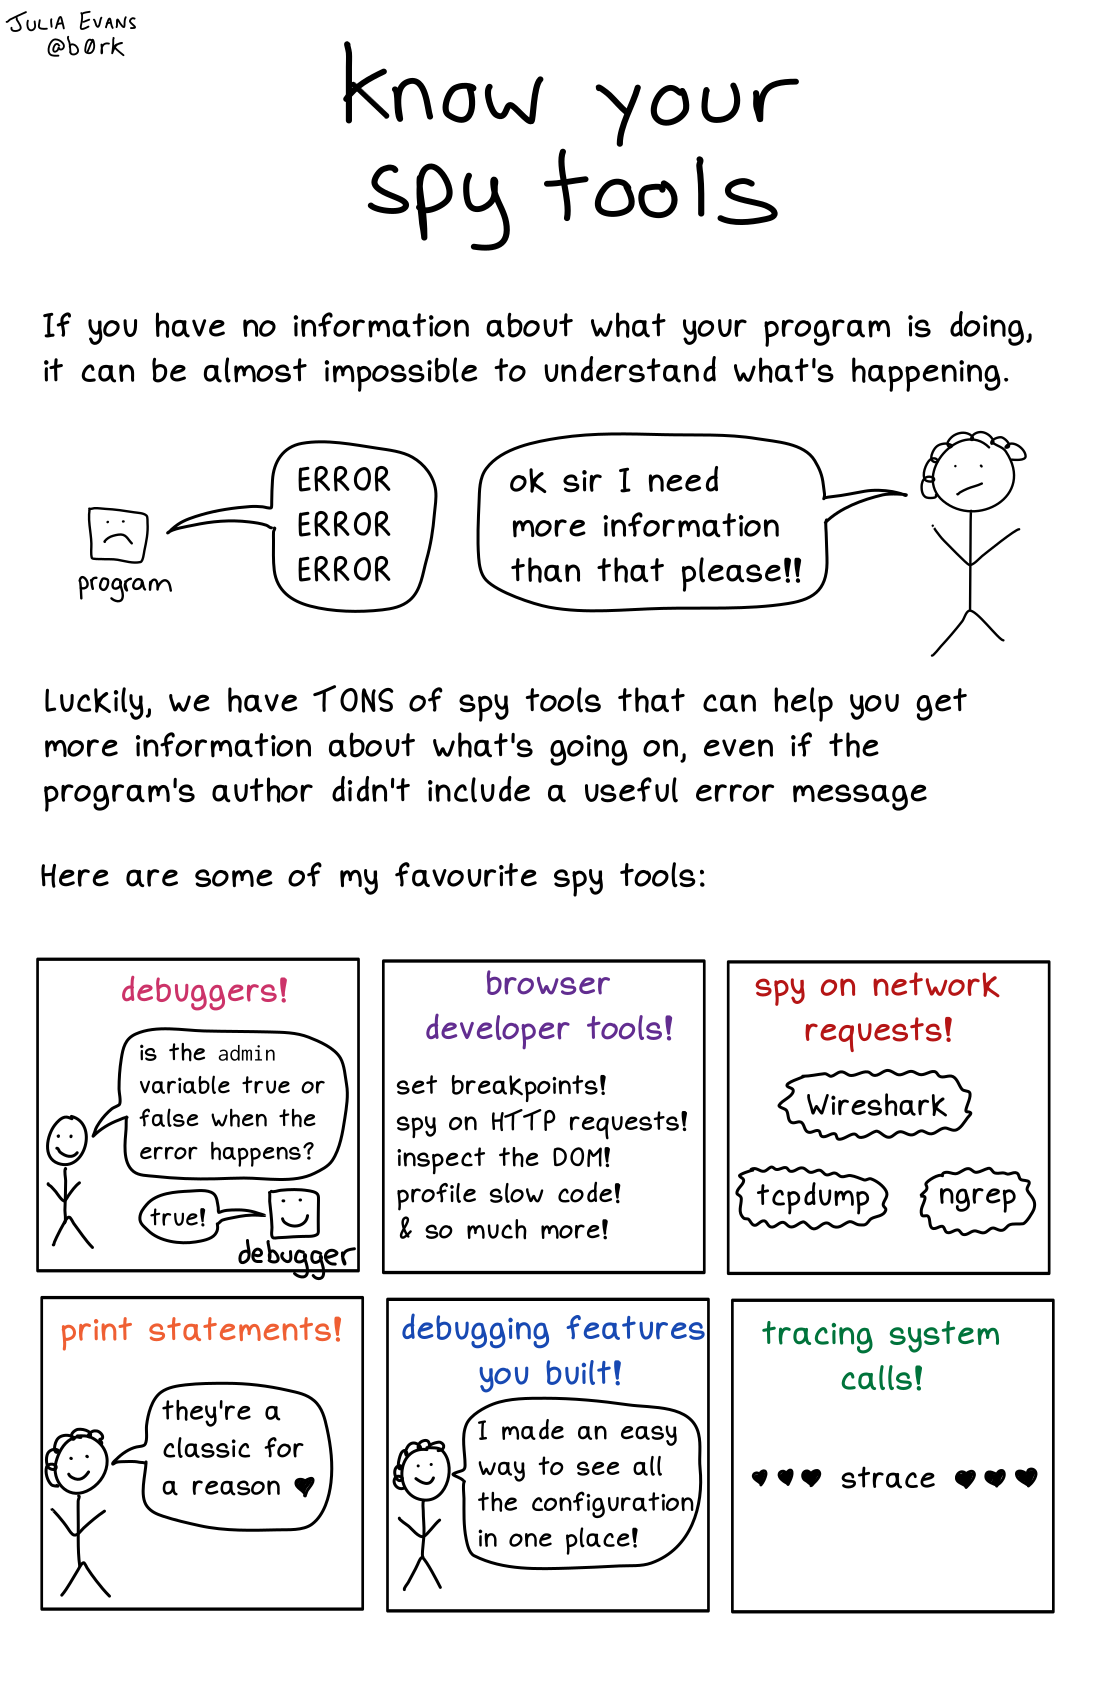 JULIA EVANS
@b0rk
know your
spy tools
If you have no information about what your program is doing,
it can be almost impossible to understand what's happening.
program
ERROR
ERROR
ERROR
ok sir I need
more information
than that please!!
Luckily, we have TONS of spy tools that can help you get
more information about what's going on, even if the
program's author didn't include a useful error message
Here are some of my favourite spy tools:
debuggers!
is the admin
variable true or
false when the
error happens?
true!
debugger
browser
developer tools!
set breakpoints!
spy on HTTP requests!
inspect the DOM!
profile slow code!
& so much more!
spy on network
requests!
Wireshark
tcpdump
ngrep
print statements!
they're a
classic for
a reason ♥
debugging features
you built!
I made an easy
way to see all
the configuration
in one place!
tracing system
calls!
♥ ♥ ♥ strace ♥ ♥ ♥